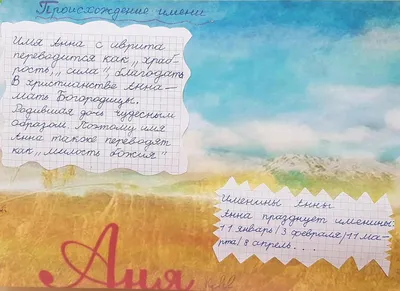 Происхождение имени
Имя Анна с иврита
переводится как „храб-
рость,„ сила", благодать
В христианстве Анна-
мать Богородицы.
Родившая дочь чудесным
образом. Поэтому имя
Анна также переводят
как „милость божия"
Именины Анны
Анна празднует именины
11 январь/3 февраля/11 ма-
рта/8 апрель...
Аня